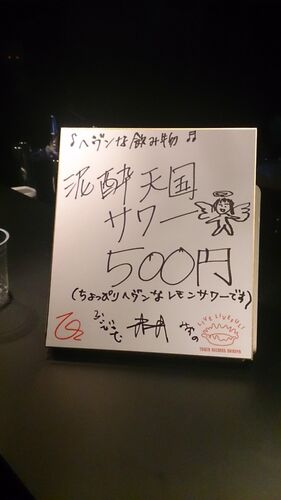 ♪ヘヴンな飲み物♬
泥酔天国
サワー
500円
(ちょっぴりヘヴンなレモンサワーです)
LIVE LIVEFUL!
TOWER RECORDS SHIBUYA